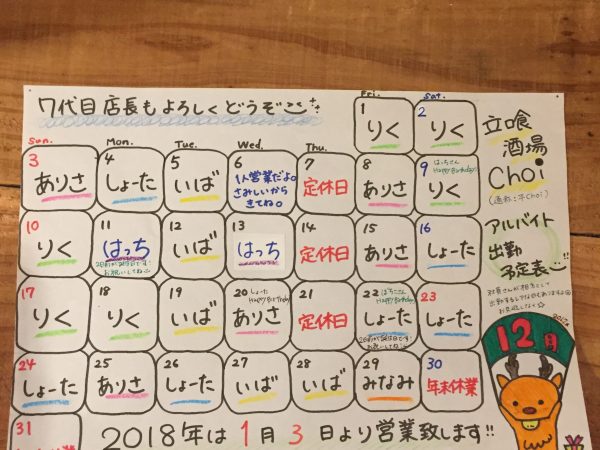 7代目店長もよろしくどうぞ
Fri. Sat.
1 りく
2 りく
立喰
酒場
Choi
(通称:本Choi)
アルバイト
出勤
予定表
Sun. Mon. Tue. Wed. Thu.
3 ありさ
4 しょーた
5 いば
6 1人営業だよ。
さみしいから
きてね。
7 定休日
8 ありさ
9 はっちさん
Happy Birthday!
りく
10 りく
11 はっち
2日前が誕生日です!
お祝いしてね
12 いば
13 はっち
14 定休日
15 ありさ
16 しょーた
17 りく
18 りく
19 いば
20 しょーた
Happy Birthday!
ありさ
21 定休日
22 はちこさん
Happy Birthday!
しょーた
2日前が誕生日です!
お祝いしてね
23 しょーた
12月
24 しょーた
25 ありさ
26 しょーた
27 いば
28 いば
29 みなみ
30 年末休業
31
2018年は1月3日より営業致します!!